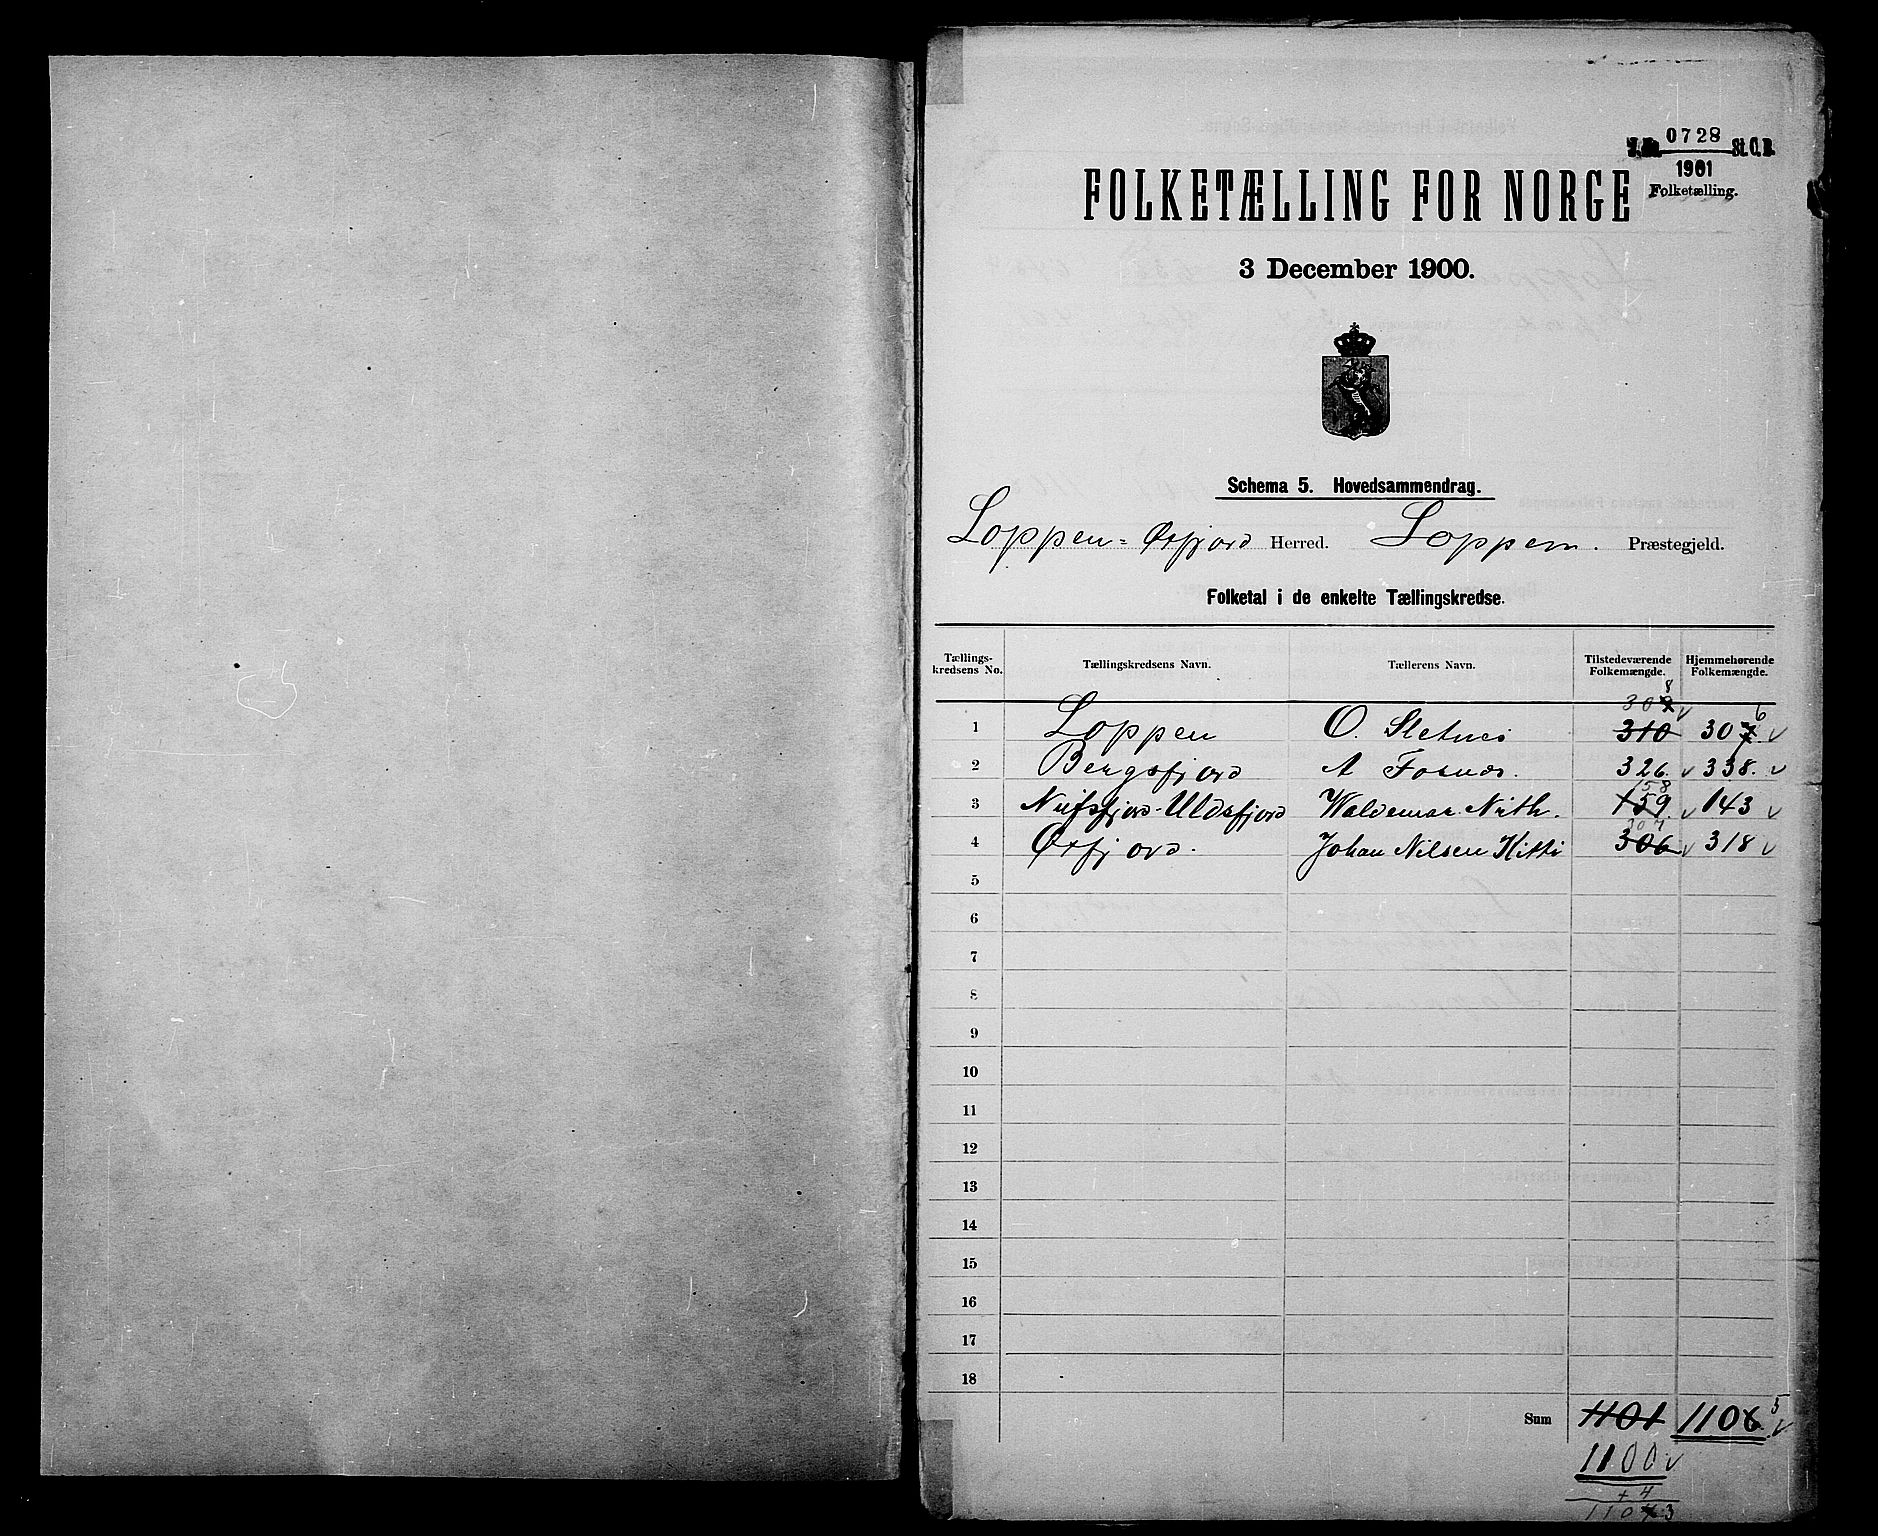 J. No. 0728 St. C. B.
1901
Folketælling.
FOLKETÆLLING FOR NORGE
3 December 1900.
Schema 5. Hovedsammendrag.
Loppen-Øxfjord Herred. Loppen. Præstegjeld.
Folketal i de enkelte Tællingskredse.
Tællings-kredsens No. Tællingskredsens Navn. Tællerens Navn. Tilstedeværende Folkemængde. Hjemmehørende Folkemængde.
8
309 6
1 Loppen O. Sletnes 310 307
2 Bergsfjord A Fosnæs. 326. 338.
158
3 Nufsfjord-Uldsfjord Waldemar Nuth. 159. 143
307
4 Øxfjord. Johan Nilsen Kitti 306 318
5
6
7
8
9
10
11
12
13
14
15
16
17
18
Sum 1101 1106 5
1100
+4
1104 3